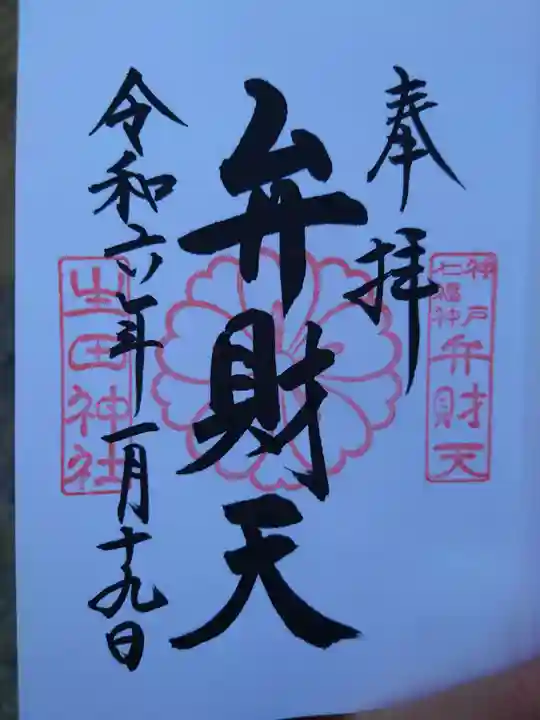 奉拝
神戸
七福神
弁財天
弁財天
令和六年一月十九日
生田神社